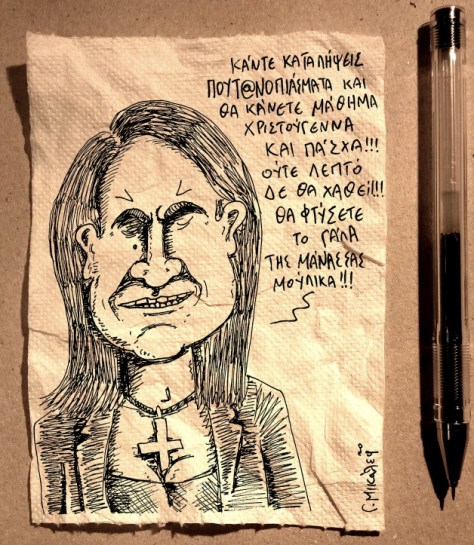 ΚΆΝΤΕ ΚΑΤΑΛΉΨΕΙΣ
ΠΟΥΤ@ΝΟΠΙΆΣΜΑΤΑ ΚΑΙ
ΘΑ ΚΆΝΕΤΕ ΜΆΘΗΜΑ
ΧΡΙΣΤΟΎΓΕΝΝΑ
ΚΑΙ ΠΆΣΧΑ!!!
ΟΎΤΕ ΛΕΠΤΌ
ΔΕ ΘΑ ΧΑΘΕΊ!!!
ΘΑ ΦΤΎΣΕΤΕ
ΤΟ ΓΆΛΑ
ΤΗΣ ΜΆΝΑΣ ΣΑΣ
ΜΟΎΛΙΚΑ!!!